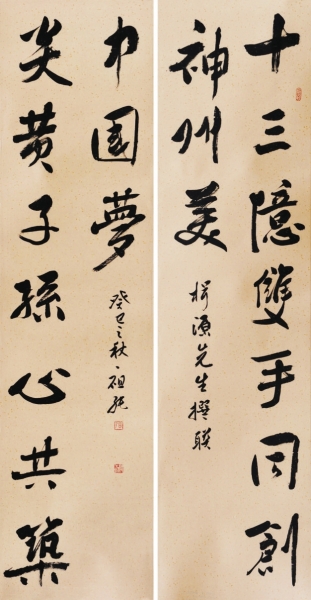 十三億雙手同創
神州美
源先生撰聯
炎黃子孫心共築
中國夢
癸巳之秋祖